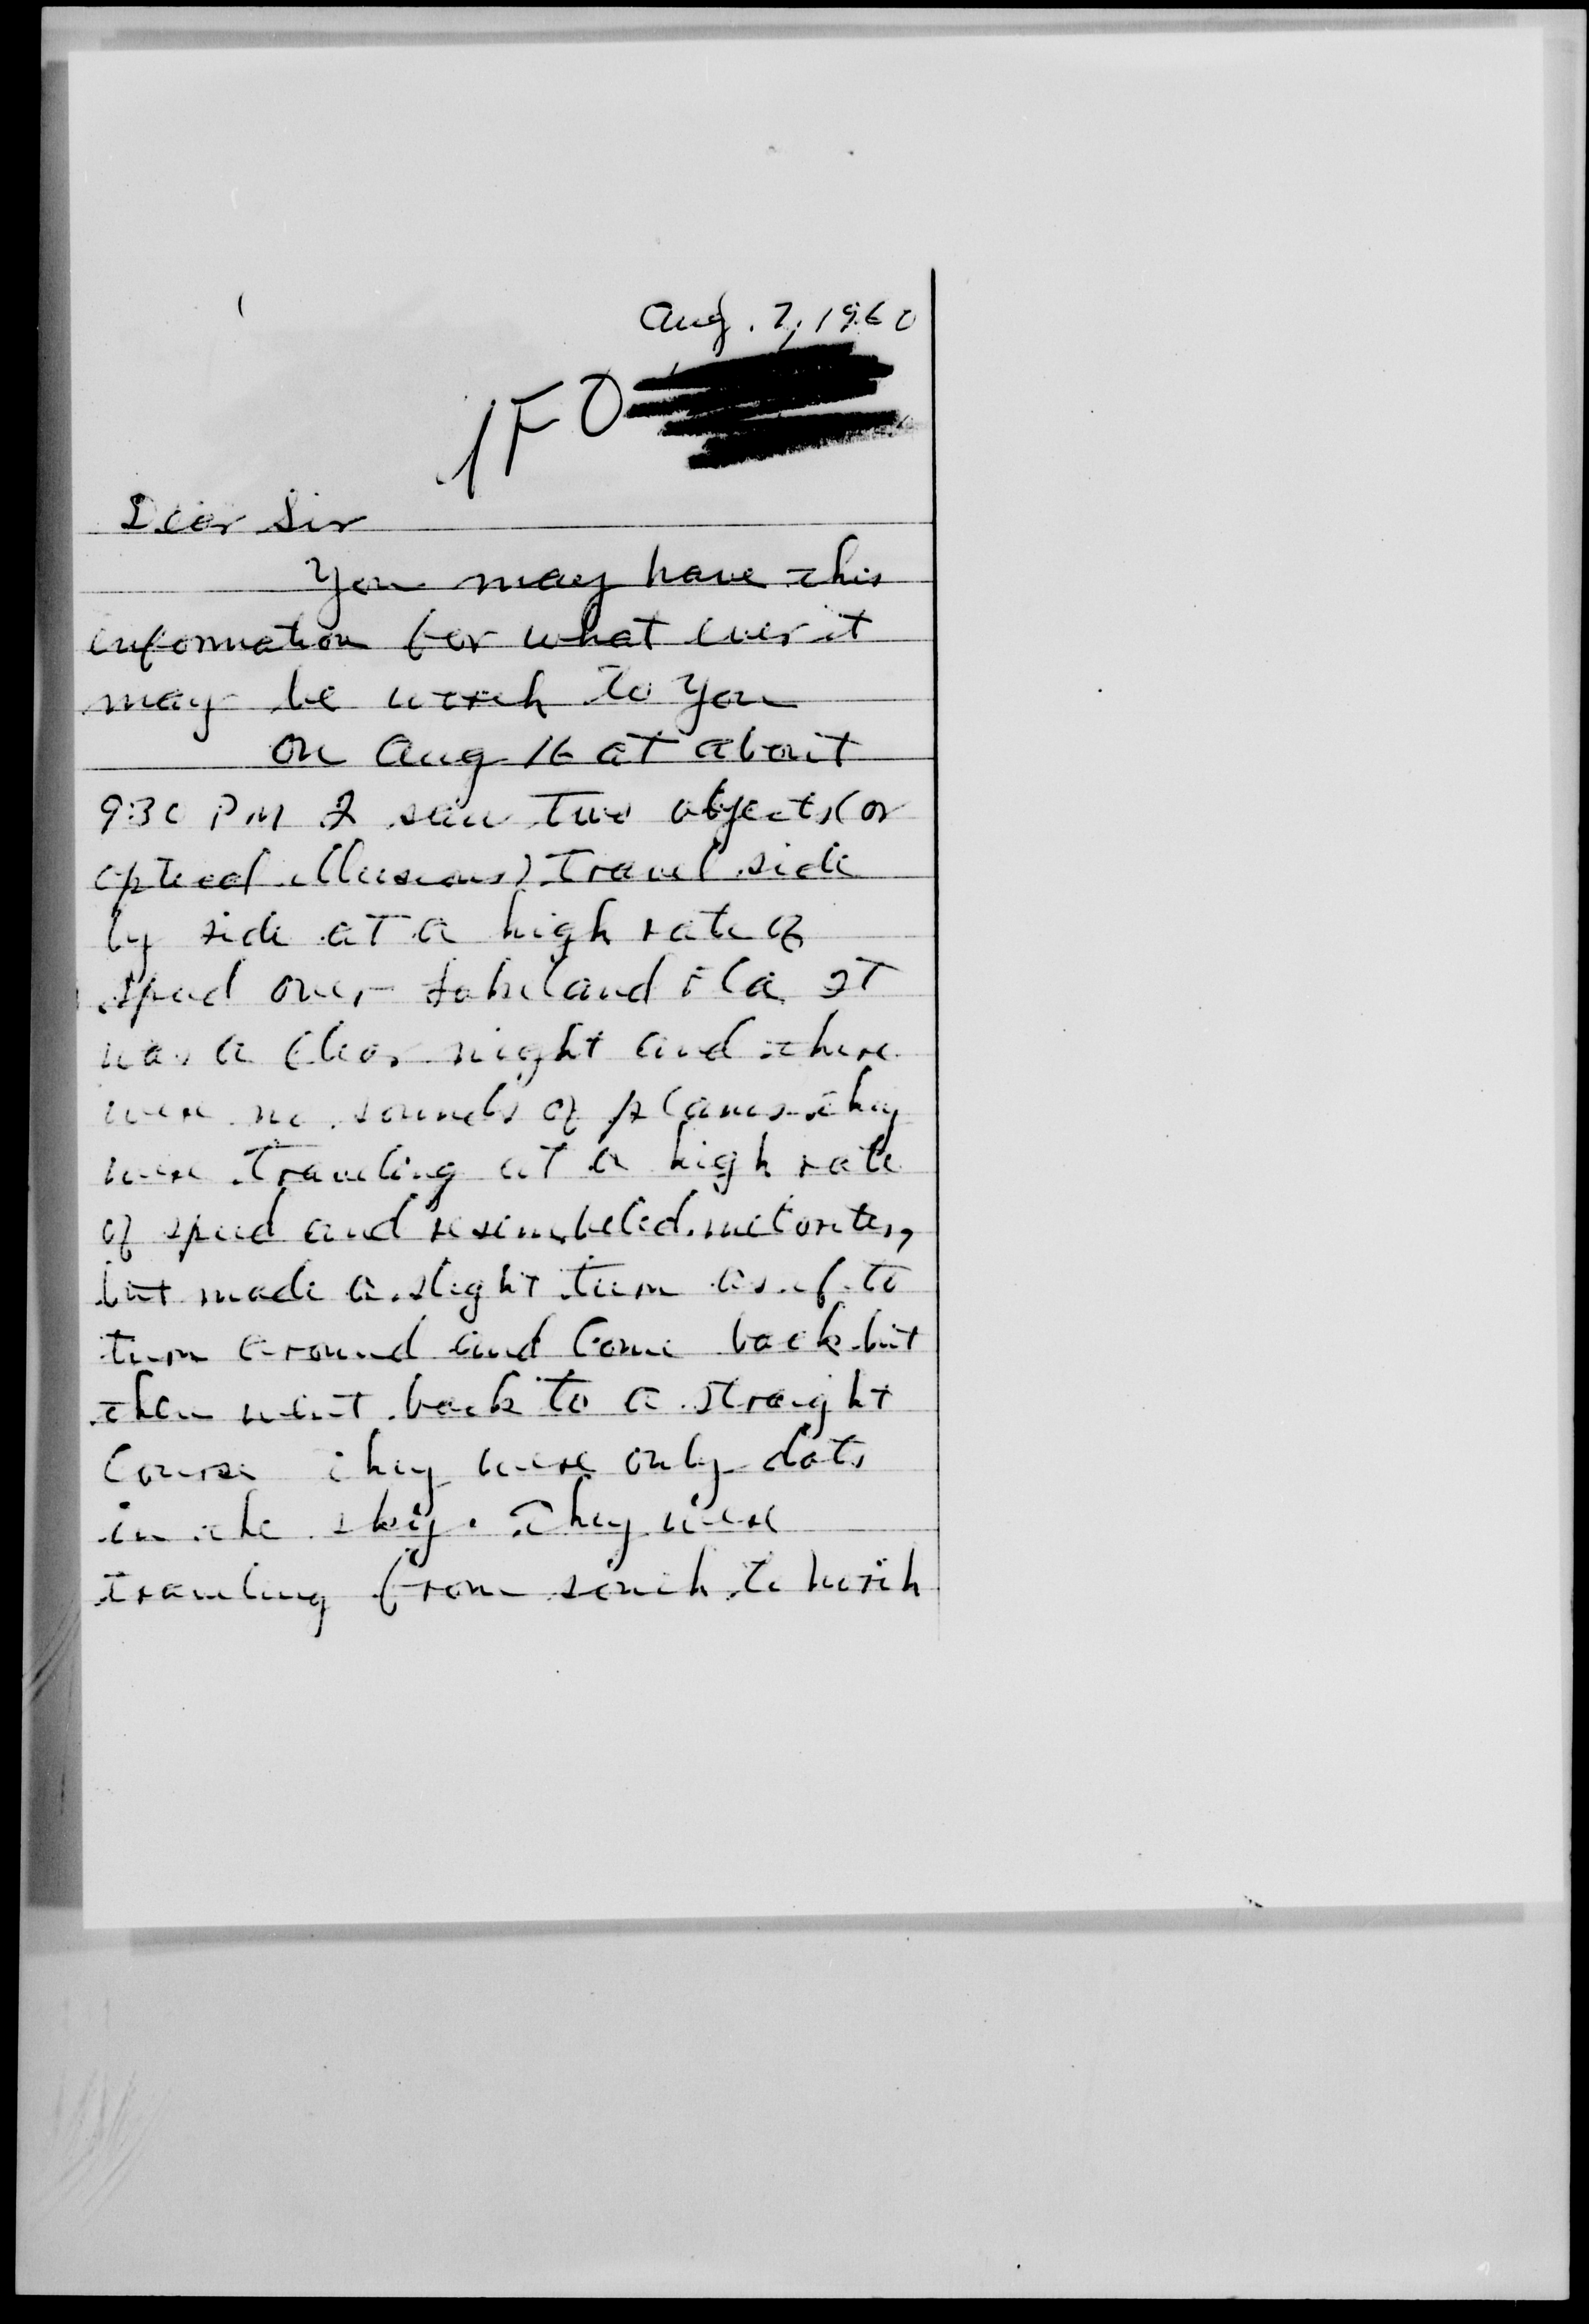 Aug. 7, 1960
IFO
Dear Sir
You may have this
information for what ever it
may be worth to You
On Aug 16 at about
9:30 PM I saw Two objects (or
optical illusions) Travel side
by side at a high rate of
speed over Lakeland Fla. It
was a clear night and there
were no sounds of planes. They
were Traveling at a high rate
of speed and resembeled metorites,
but made a slight turn as if to
turn around and Come back but
then went back to a straight
Course They were only dots
in the sky. They were
traveling from south to North